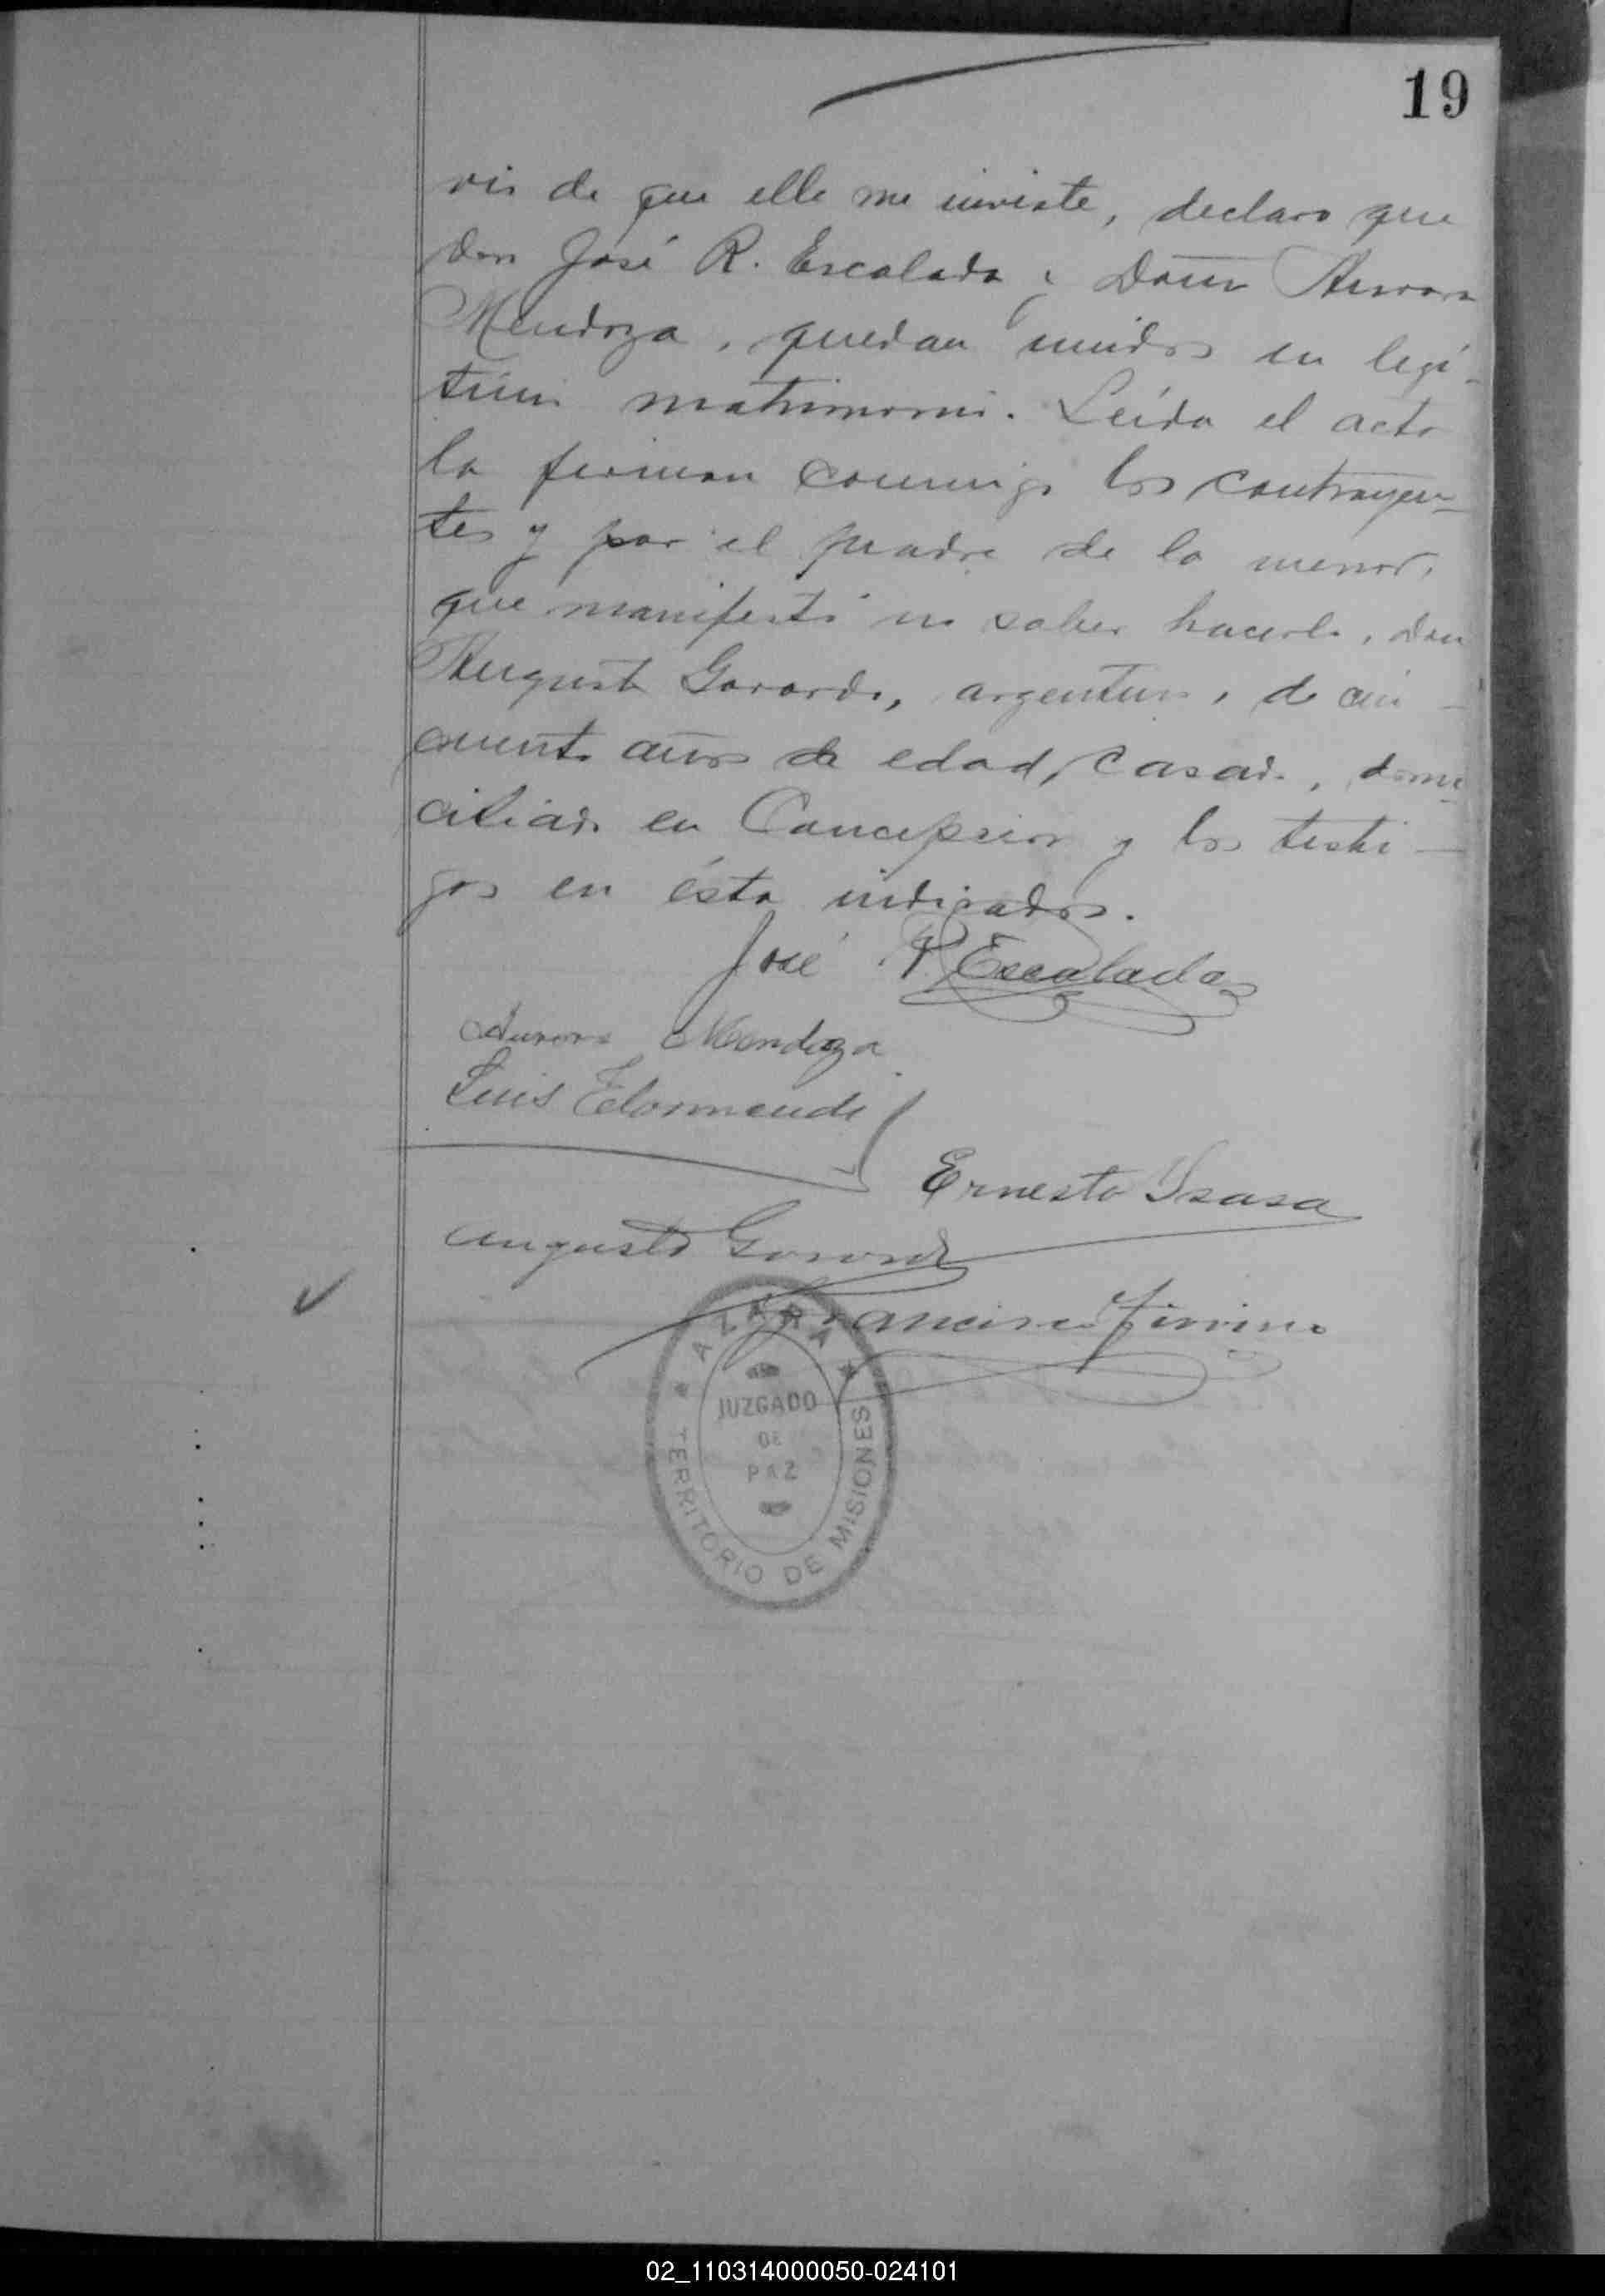 19
ris de que ella me inviste, declaro que
Don José R. Escalada y Doña Aurora
Mendoza, quedan unidos en legí-
timo matrimonio. Leída el acta
la firman conmigo los contrayen-
tes y por el padre de la menor,
que manifestó no saber hacerlo, don
Augusto Gorordo, argentino, de cin-
cuenta años de edad, casado, domi-
ciliado en Concepcion y los testi-
gos en ésta indicados.
José R Escalada
Aurora Mendoza
Luis Elormendi
Ernesto Isasa
Augusto Gorordo
Francisco
AZARA
JUZGADO
DE
PAZ
TERRITORIO DE MISIONES
02_110314000050-024101